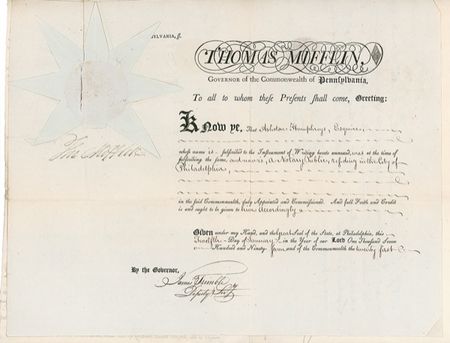 SYLVANIA, ſſ.
THOMAS MIFFLIN,
GOVERNOR of the Commonwealth of Pennſylvania,
To all to whom theſe Preſents ſhall come, Greeting:
KNow ye, That Aſhton Humphreys, Eſquire,
whoſe name is ſubſcribed to the Inſtrument of Writing hereto annexed, was at the time of
ſubſcribing the ſame, and now is, a Notary Public, reſiding in the City of
Philadelphia,
Tho Mifflin
in the ſaid Commonwealth, duly Appointed and Commiſſioned. And full Faith and Credit
is and ought to be given to him accordingly
Given under my Hand, and the great Seal of the State, at Philadelphia, this
Twelfth Day of January in the Year of our Lord One Thouſand Seven
Hundred and Ninety- and of the Commonwealth the twenty first
By the Governor,
James Trimble
Deputy Secy